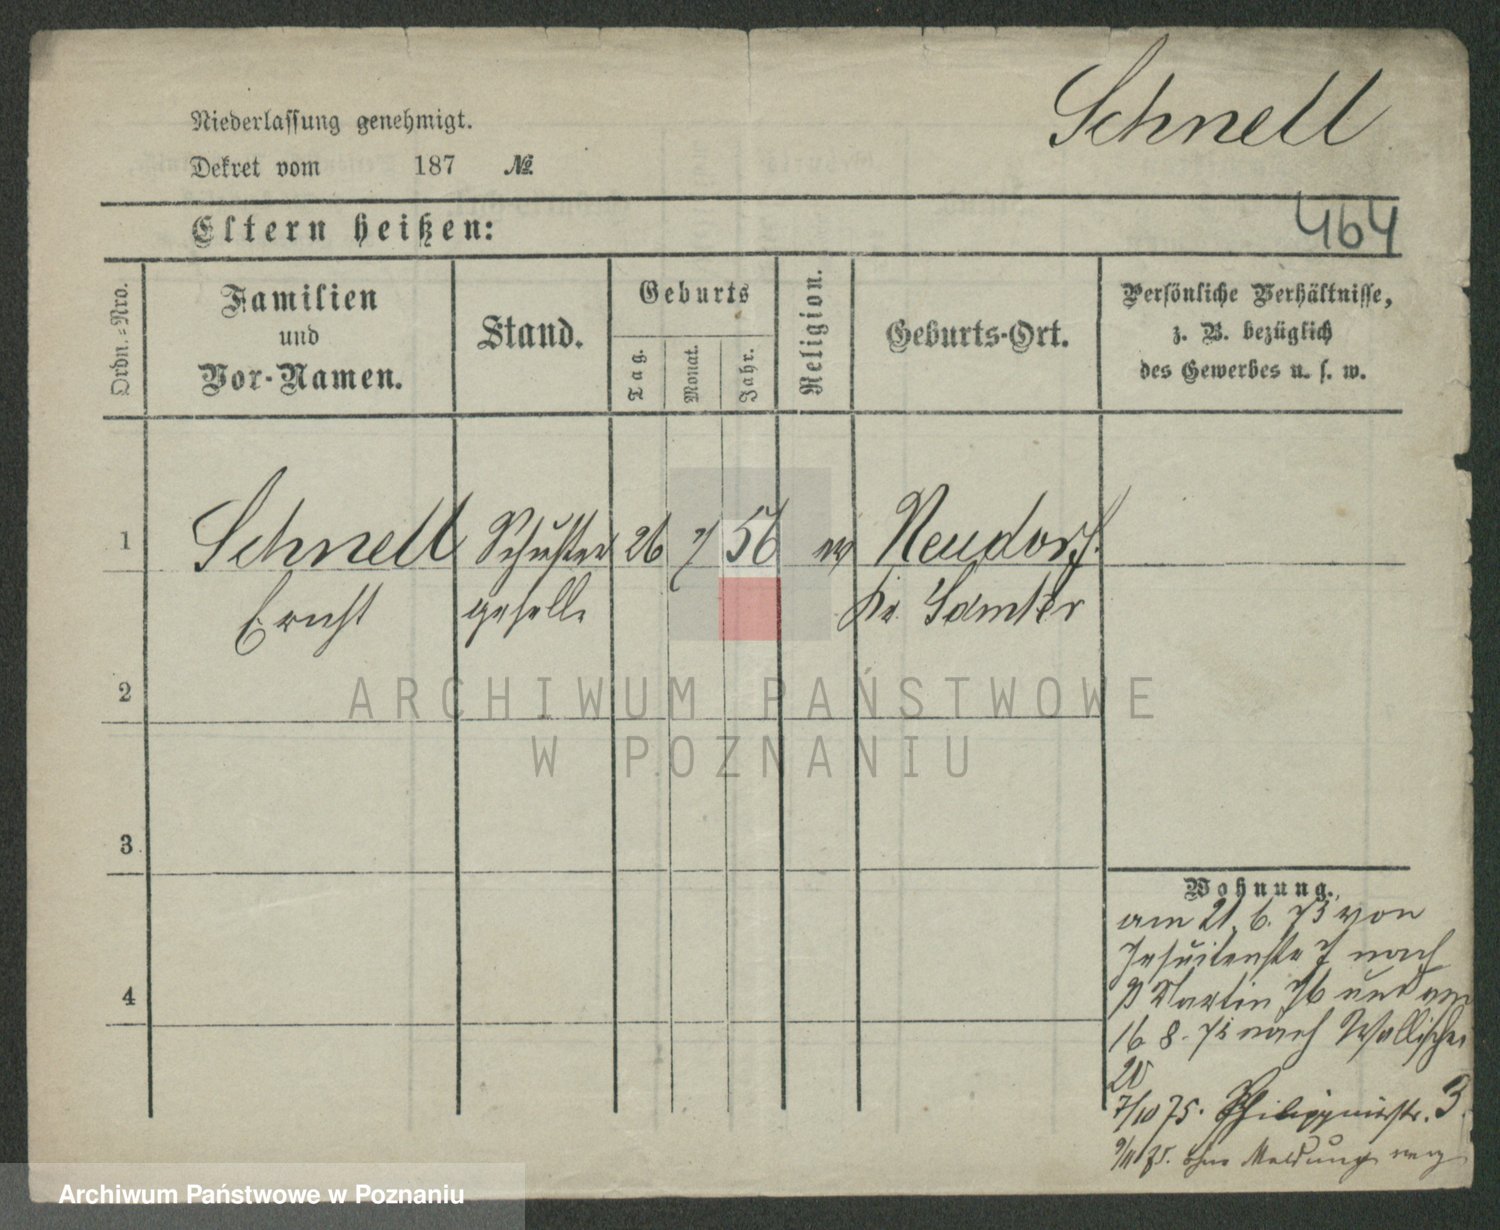 Schnell
Niederlassung genehmigt.
Dekret vom 187 №
464
Eltern heißen:
Ordn.-Nro.
Familien
und
Vor-Namen.
Stand.
Geburts
Tag.
Monat.
Jahr.
Religion.
Geburts-Ort.
Persönliche Verhältnisse,
z. B. bezüglich
des Gewerbes u. s. w.
1 Schnell Schuster 26 7 56 ev Neudorf.
Ernst geselle Kr. Samter
2
3
4
Wohnung.
am 21. 6. 75 von
Jesuitenstr 7 nach
St Martin 76 und am
16. 8. 75 nach Wallischei
20
7/10 75. Philippinerstr. 3.
9/11 75. ohne Meldung verz
ARCHIWUM PAŃSTWOWE
W POZNANIU
Archiwum Państwowe w Poznaniu